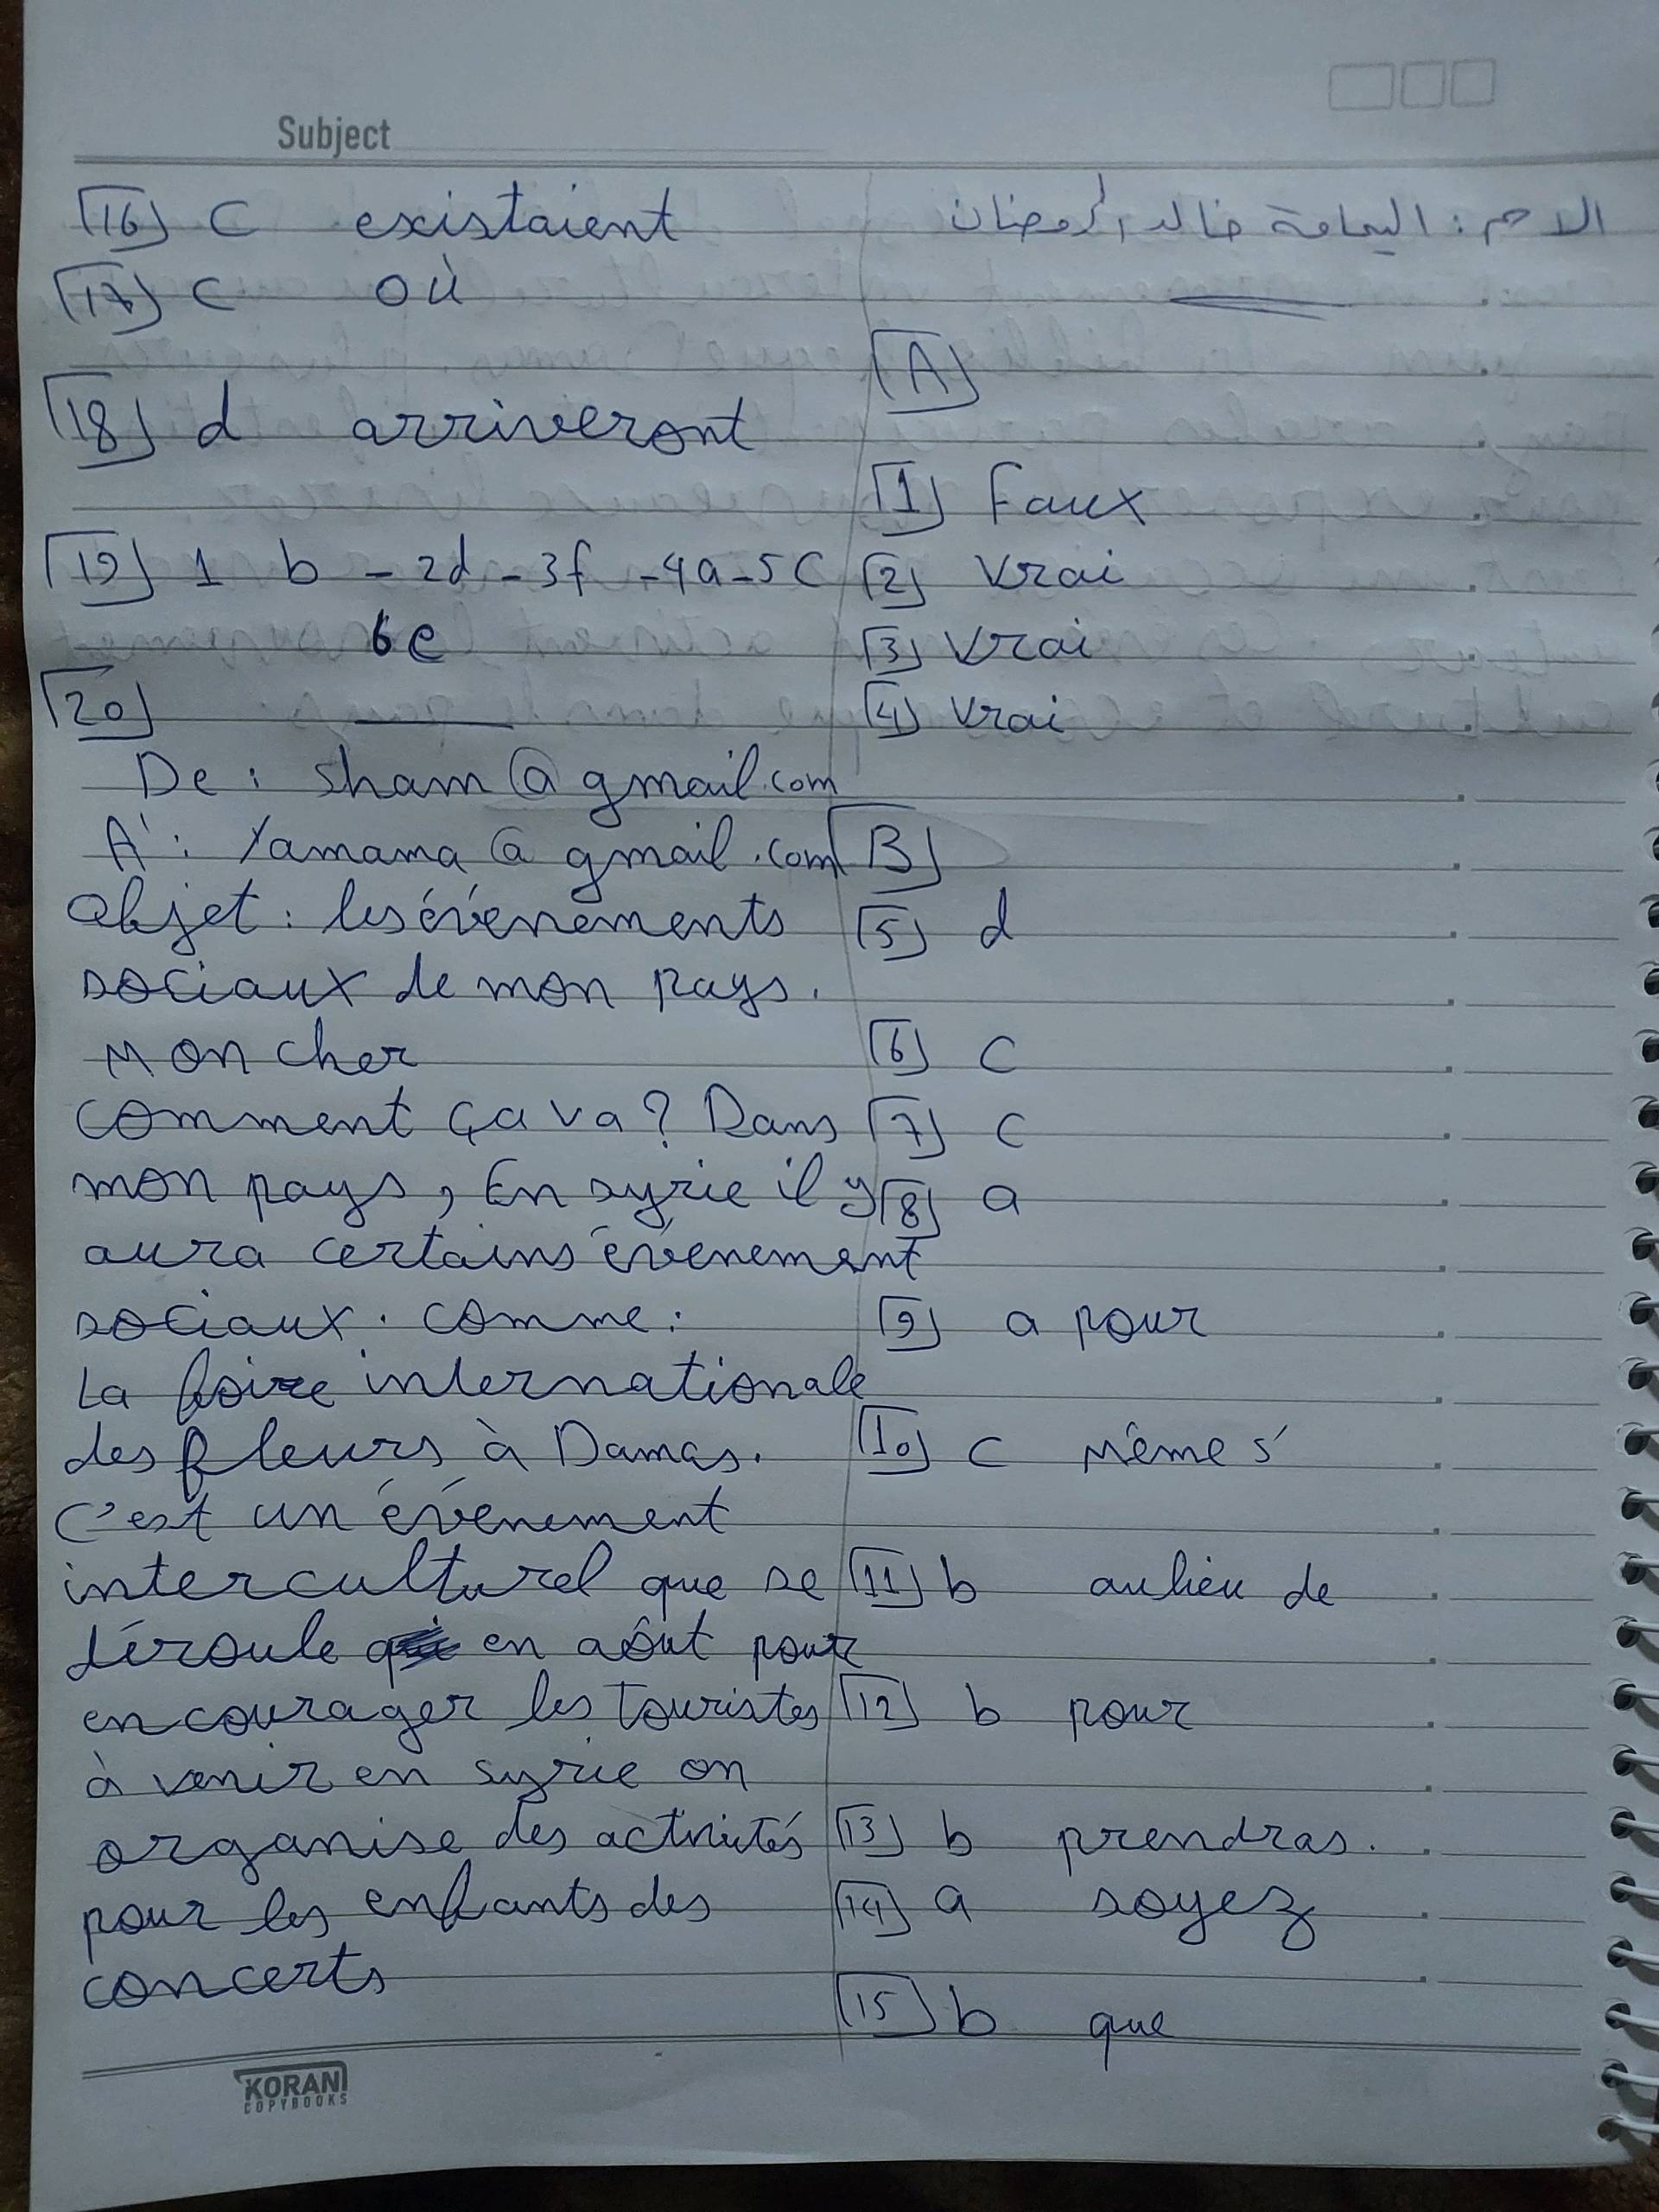 Subject
الاسم: اليمامة خالد الرمضان
A
1 Faux
2 Vrai
3 Vrai
4 Vrai
B
5 d
6 C
7 C
8 a
9 a pour
10 C Mêmes'
11 b au lieu de
12 b pour
13 b prendras.
14 a soyez
15 b que
16 C existaient
17 C où
18 d arriveront
19 1 b - 2d - 3f - 4a - 5C
6e
20
De : sham@gmail.com
A' : Yamama@gmail.com
Objet : les événements
sociaux de mon pays.
Mon cher
comment ça va? Dans
mon pays, En syrie il y
aura certains événement
sociaux. comme :
La foire internationale
des fleurs à Damas.
C'est un événement
interculturel que se
déroule en aôut pour
encourager les touristes
à venir en syrie on
organise des activités
pour les enfants des
concerts
KORANI
COPYBOOKS